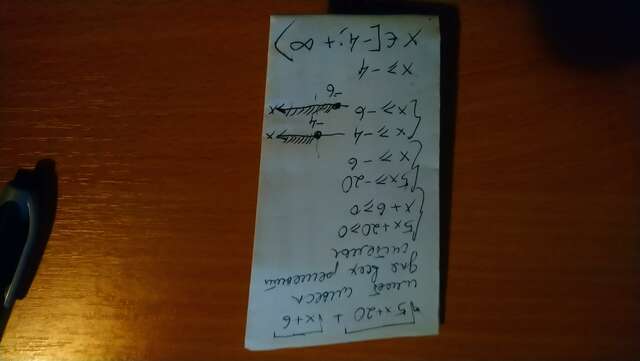 √5x+20 + √x+6
имеет смысл
для всех решений
системы
{ 5x+20≥0
x+6≥0
{ 5x≥-20
x≥-6
{ x≥-4 -4 x
x≥-6 -6 x
x≥-4
x∈[-4;+∞)